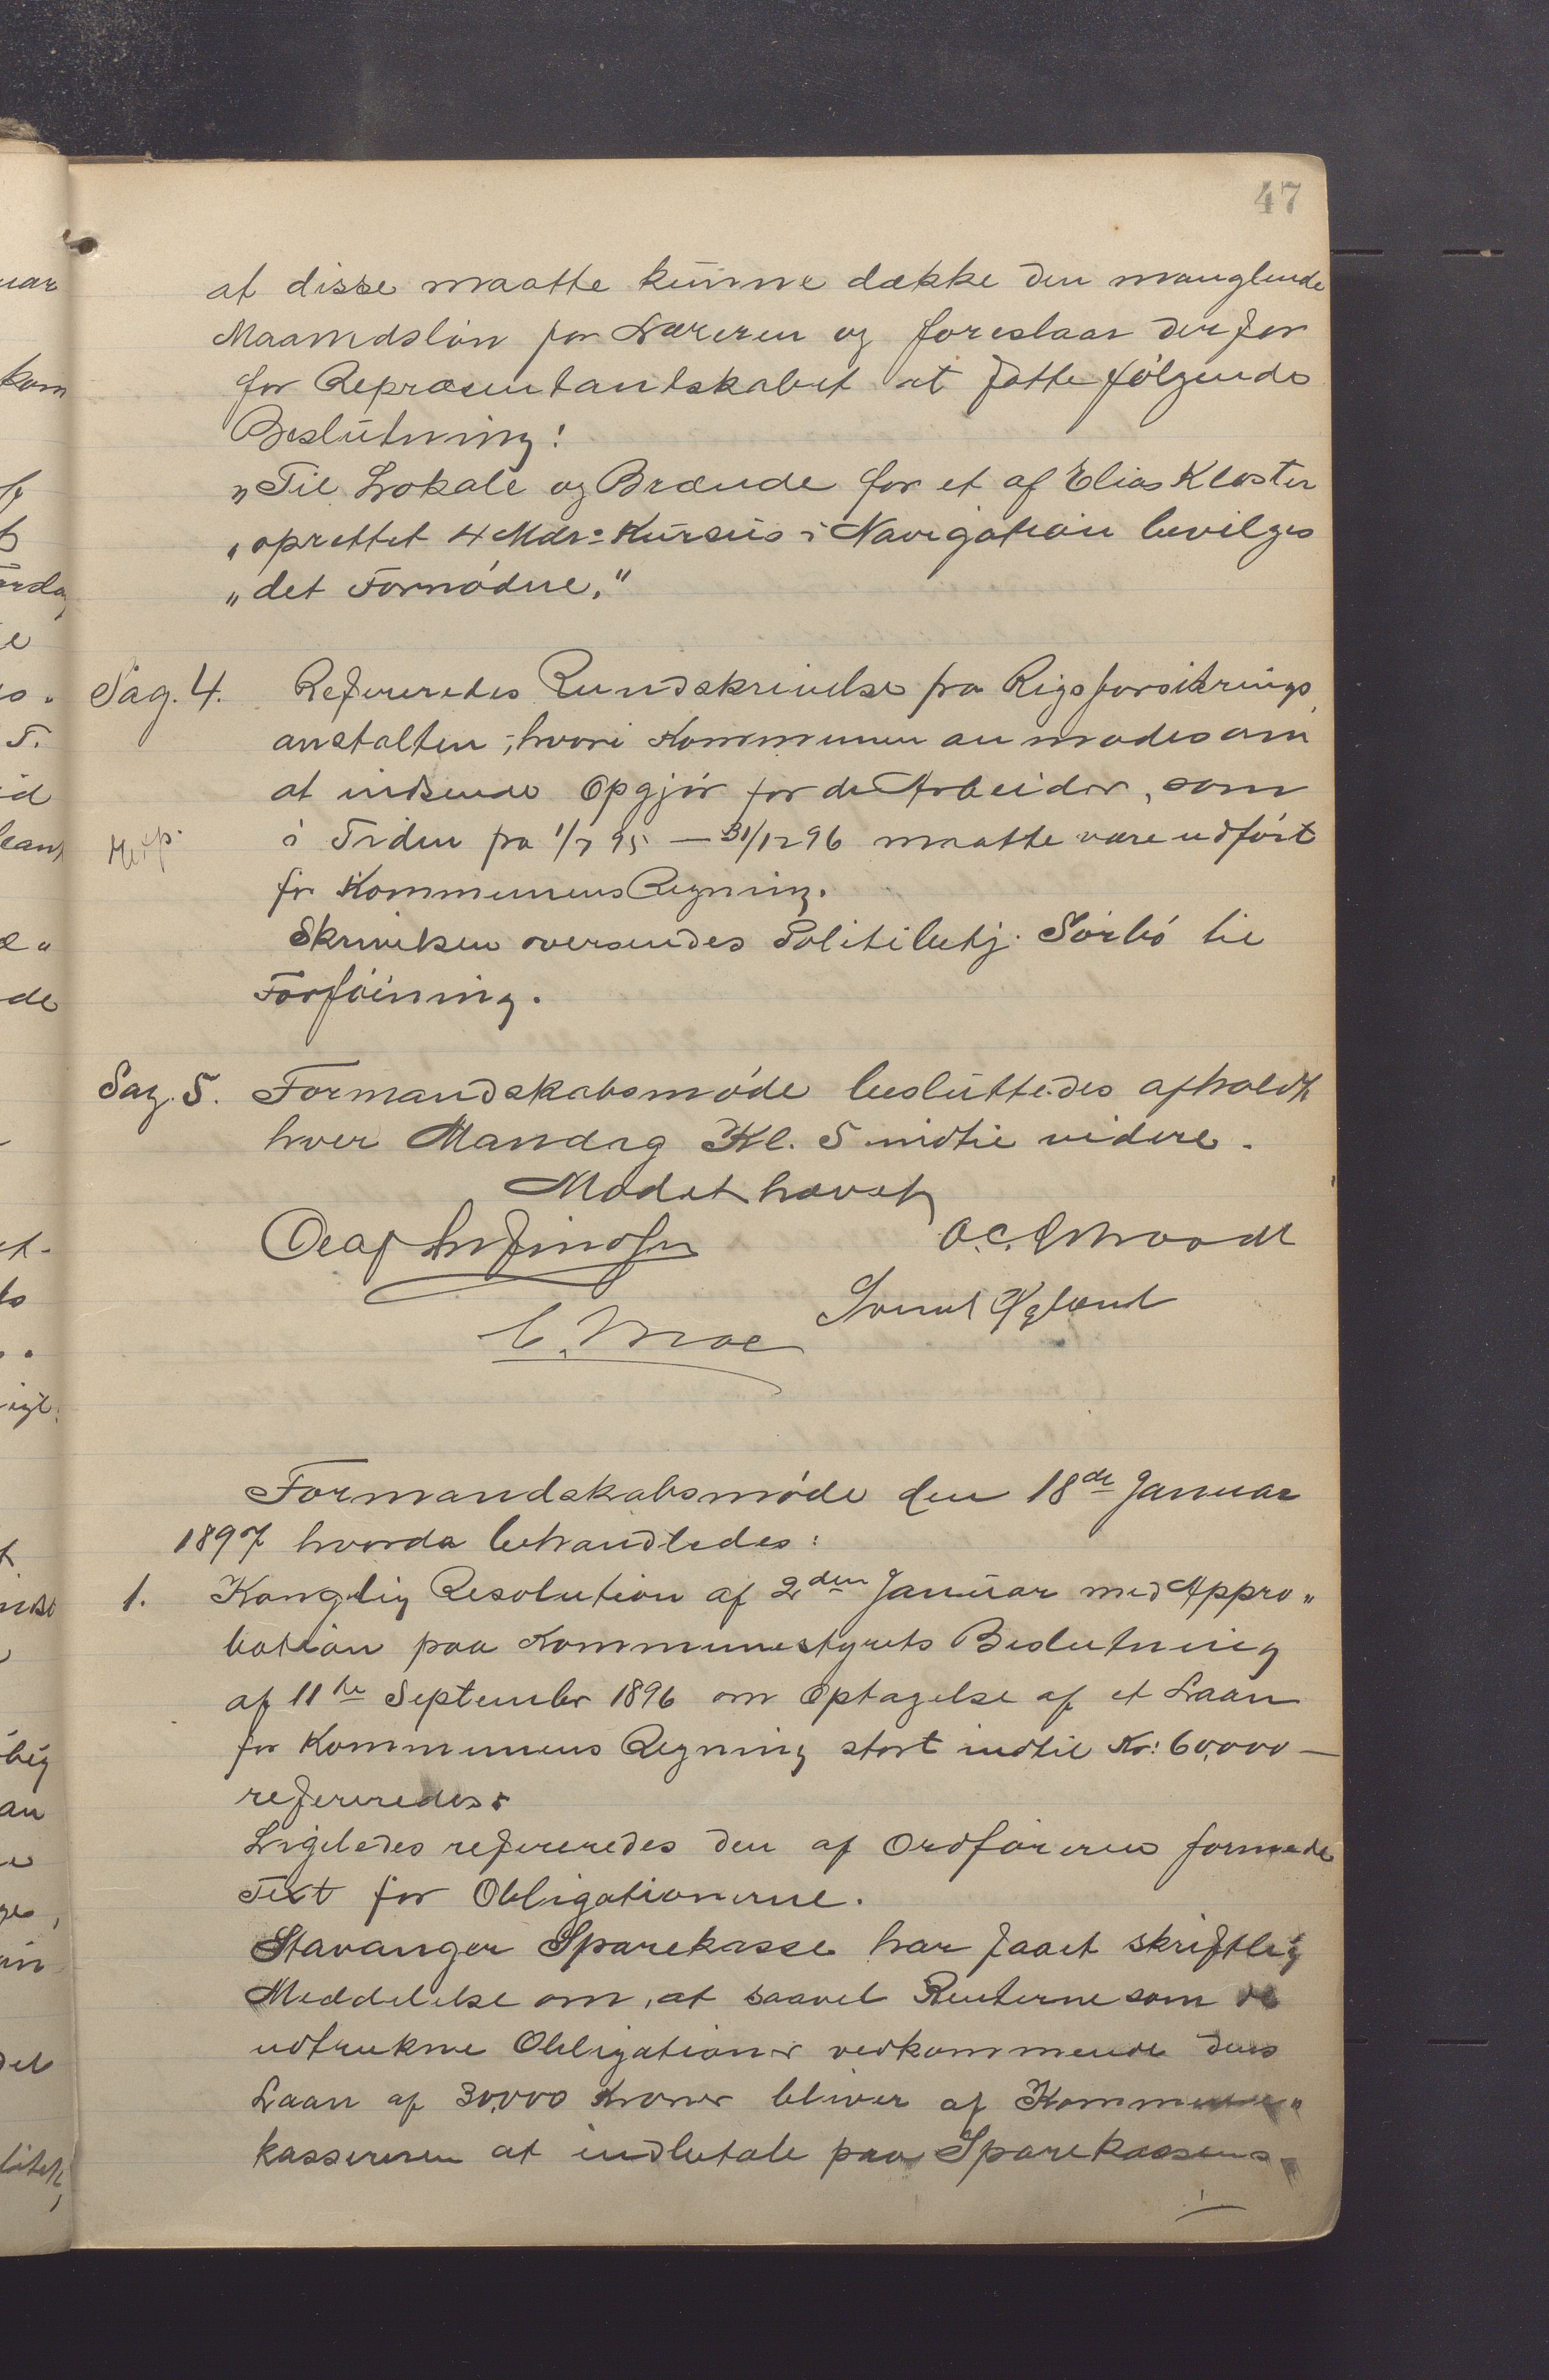 47
at disse maatte kunne dække den manglende
Maanedsløn for Læreren og foreslaar derfor
for Repræsentantskabet at fatte følgende
Beslutning:
„Til Lokale og Brænde for et af Elias Kloster
„oprettet 4 Mdrs Kursus i Navigation bevilges
„det Fornødne."
Sag. 4. Refereredes Rundskrivelse fra Rigsforsikrings
anstalten, hvori Kommunen anmodes om
at indsende Opgjør for de Arbeider, som
i Tiden fra 1/7 95 — 31/12 96 maatte være udført
for Kommunens Regning.
Skrivelsen oversendes Politibetj. Sørbø til
Forføining.
Sag. 5. Formandskabsmøde besluttedes afholdt
hver Mandag Kl. 5 indtil videre.
Mødet hævet
Olaf
O.C.
C. Moe
Formandskabsmøde den 18de Januar
1897 hvorda behandledes:
1. Kongelig Resolution af 2den Januar med Appro„
bation paa Kommunestyrets Beslutning
af 11te September 1896 om Optagelse af et Laan
for Kommunens Regning stort indtil Kr: 60,000 —
refereredes.
Ligeledes refereredes den af Ordføreren formede
Text for Obligationerne.
Stavanger Sparekasse har faaet skriftlig
Meddelelse om, at saavel Renterne som de
udtrukne Obligationer vedkommende dens
Laan af 30,000 Kroner bliver af Kommune„
kassereren at indbetale paa Sparekassens